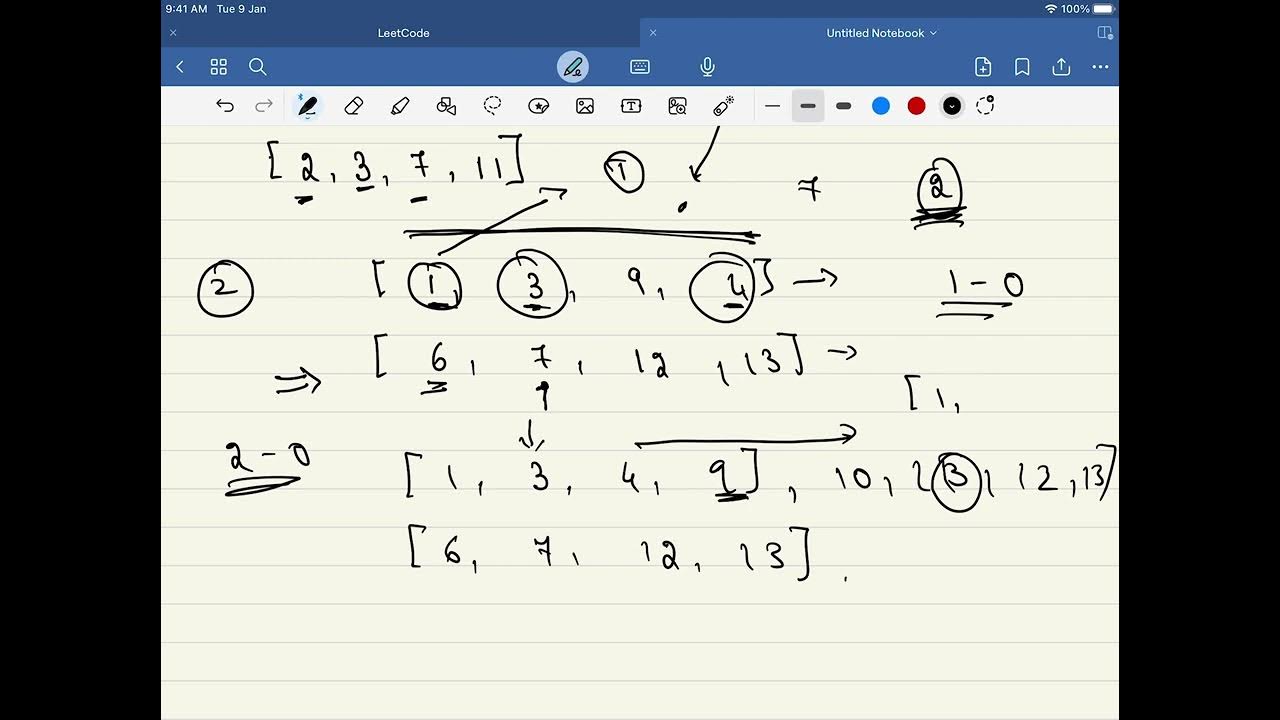 9:41 AM Tue 9 Jan 100%
LeetCode Untitled Notebook
[ 2, 3, 7, 11 ] 1 7 2
2 [ 1, 3, 9, 4 ] → 1 - 0
⇒ [ 6, 7, 12, 13 ] →
[ 1,
2 - 0 [ 1, 3, 4, 9 ], 10, 2 3, 12, 13 ]
[ 6, 7, 12, 13 ] .